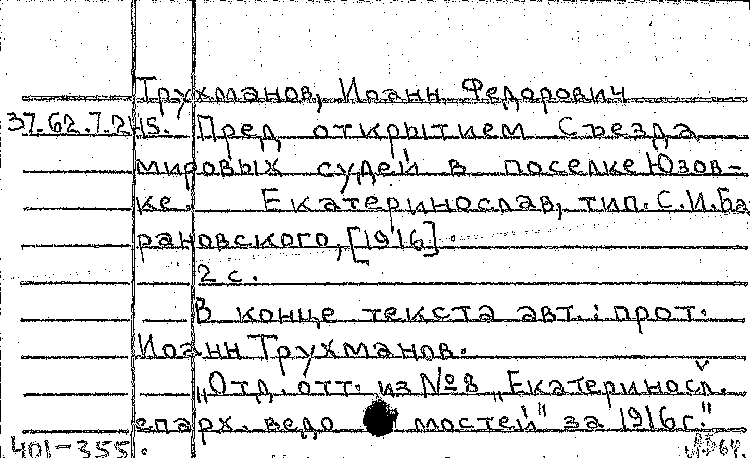 Трухманов, Иоанн Федорович
37.62.7.245. Пред открытием Съезда
мировых судей в поселке Юзов-
ке. Екатеринослав, тип. С.И.Ба
рановского, [1916].
2 с.
В конце текста авт.: прот.
Иоанн Трухманов.
„Отд. отт. из № 8 „Екатериносл.
епарх. ведомостей" за 1916 г."
401-355.